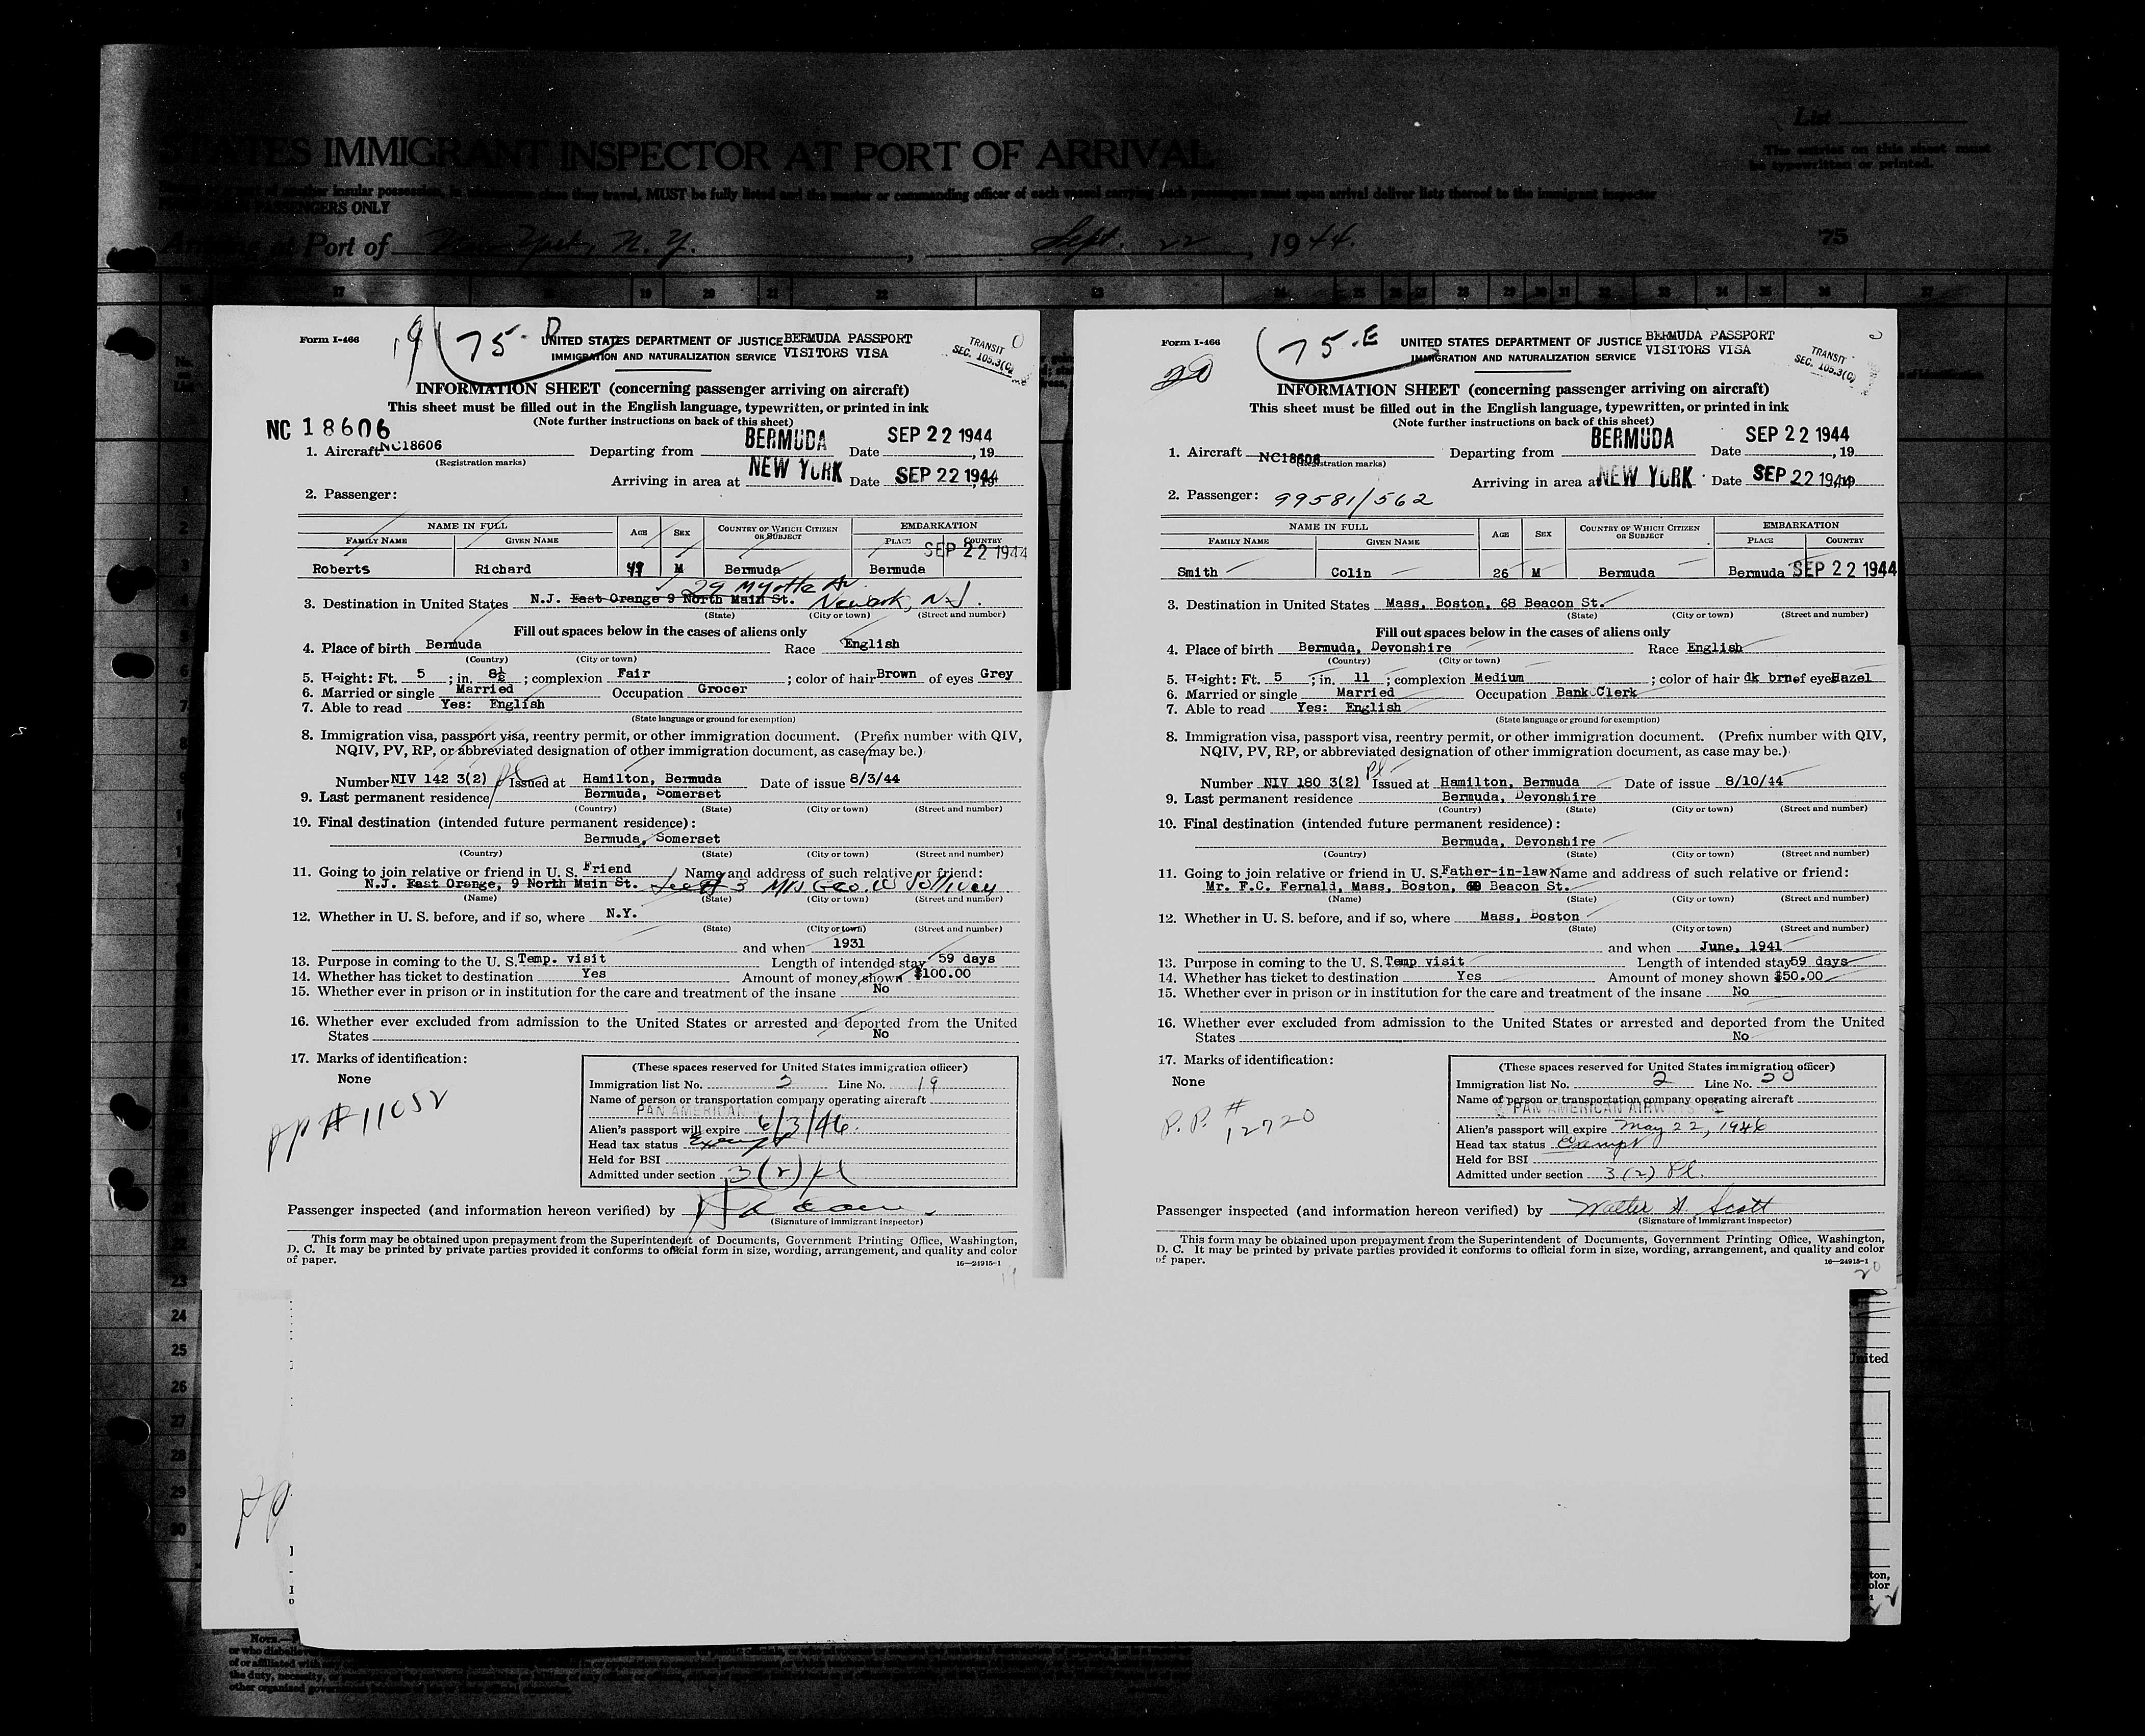 List
STATES IMMIGRANT INSPECTOR AT PORT OF ARRIVAL
The entries on this sheet must
be typewritten or printed.
insular possession, in whatsoever class they travel, MUST be fully listed and the master or commanding officer of each vessel carrying such passengers must upon arrival deliver lists thereof to the immigrant inspector
PASSENGERS ONLY
Arriving at Port of New York, N.Y., Sept. 22, 1944.
75
Form I-466
19 75-D
UNITED STATES DEPARTMENT OF JUSTICE BERMUDA PASSPORT
IMMIGRATION AND NATURALIZATION SERVICE VISITORS VISA
TRANSIT
SEC. 105.3(C)
INFORMATION SHEET (concerning passenger arriving on aircraft)
This sheet must be filled out in the English language, typewritten, or printed in ink
(Note further instructions on back of this sheet)
NC 18606
1. Aircraft NC18606 Departing from BERMUDA Date SEP 22 1944, 19
(Registration marks)
Arriving in area at NEW YORK Date SEP 22 1944
2. Passenger:
NAME IN FULL AGE SEX COUNTRY OF WHICH CITIZEN OR SUBJECT EMBARKATION
FAMILY NAME GIVEN NAME PLACE COUNTRY
SEP 22 1944
Roberts Richard 49 M Bermuda Bermuda
29 Myrtle Av
3. Destination in United States N.J. East Orange 9 North Main St. Newark, N.J.
(State) (City or town) (Street and number)
Fill out spaces below in the cases of aliens only
4. Place of birth Bermuda Race English
(Country) (City or town)
5. Height: Ft. 5 ; in. 8½ ; complexion Fair ; color of hair Brown of eyes Grey
6. Married or single Married Occupation Grocer
7. Able to read Yes: English
(State language or ground for exemption)
8. Immigration visa, passport visa, reentry permit, or other immigration document. (Prefix number with QIV,
NQIV, PV, RP, or abbreviated designation of other immigration document, as case may be.)
Number NIV 142 3(2) Pl Issued at Hamilton, Bermuda Date of issue 8/3/44
9. Last permanent residence Bermuda, Somerset
(Country) (State) (City or town) (Street and number)
10. Final destination (intended future permanent residence):
Bermuda, Somerset
(Country) (State) (City or town) (Street and number)
11. Going to join relative or friend in U. S. Friend Name and address of such relative or friend:
N.J. East Orange, 9 North Main St. Mrs Geo. W
(Name) (State) (City or town) (Street and number)
12. Whether in U. S. before, and if so, where N.Y.
(State) (City or town) (Street and number)
and when 1931
13. Purpose in coming to the U. S. Temp. visit Length of intended stay 59 days
14. Whether has ticket to destination Yes Amount of money shown $100.00
15. Whether ever in prison or in institution for the care and treatment of the insane No
16. Whether ever excluded from admission to the United States or arrested and deported from the United
States No
17. Marks of identification:
None
PP # 11052
(These spaces reserved for United States immigration officer)
Immigration list No. 2 Line No. 19
Name of person or transportation company operating aircraft
PAN AMERICAN
Alien's passport will expire 6/3/46.
Head tax status Exempt
Held for BSI
Admitted under section 3(2) Pl
Passenger inspected (and information hereon verified) by
(Signature of immigrant inspector)
This form may be obtained upon prepayment from the Superintendent of Documents, Government Printing Office, Washington,
D. C. It may be printed by private parties provided it conforms to official form in size, wording, arrangement, and quality and color
of paper.
16—24915-1
19
Form I-466
20 75-E
UNITED STATES DEPARTMENT OF JUSTICE BERMUDA PASSPORT
IMMIGRATION AND NATURALIZATION SERVICE VISITORS VISA
TRANSIT
SEC. 105.3(C)
INFORMATION SHEET (concerning passenger arriving on aircraft)
This sheet must be filled out in the English language, typewritten, or printed in ink
(Note further instructions on back of this sheet)
1. Aircraft NC18606 Departing from BERMUDA Date SEP 22 1944, 19
(Registration marks)
Arriving in area at NEW YORK Date SEP 22 1944
2. Passenger: 99581/562
NAME IN FULL AGE SEX COUNTRY OF WHICH CITIZEN OR SUBJECT EMBARKATION
FAMILY NAME GIVEN NAME PLACE COUNTRY
Smith Colin 26 M Bermuda Bermuda SEP 22 1944
3. Destination in United States Mass, Boston, 68 Beacon St.
(State) (City or town) (Street and number)
Fill out spaces below in the cases of aliens only
4. Place of birth Bermuda, Devonshire Race English
(Country) (City or town)
5. Height: Ft. 5 ; in. 11 ; complexion Medium ; color of hair dk brn of eyes Hazel
6. Married or single Married Occupation Bank Clerk
7. Able to read Yes: English
(State language or ground for exemption)
8. Immigration visa, passport visa, reentry permit, or other immigration document. (Prefix number with QIV,
NQIV, PV, RP, or abbreviated designation of other immigration document, as case may be.)
Number NIV 180 3(2) Pl Issued at Hamilton, Bermuda Date of issue 8/10/44
9. Last permanent residence Bermuda, Devonshire
(Country) (State) (City or town) (Street and number)
10. Final destination (intended future permanent residence):
Bermuda, Devonshire
(Country) (State) (City or town) (Street and number)
11. Going to join relative or friend in U. S. Father-in-law Name and address of such relative or friend:
Mr. F.C. Fernald, Mass, Boston, 68 Beacon St.
(Name) (State) (City or town) (Street and number)
12. Whether in U. S. before, and if so, where Mass, Boston
(State) (City or town) (Street and number)
and when June, 1941
13. Purpose in coming to the U. S. Temp visit Length of intended stay 59 days
14. Whether has ticket to destination Yes Amount of money shown $50.00
15. Whether ever in prison or in institution for the care and treatment of the insane No
16. Whether ever excluded from admission to the United States or arrested and deported from the United
States No
17. Marks of identification:
None
P.P. # 12720
(These spaces reserved for United States immigration officer)
Immigration list No. 2 Line No. 20
Name of person or transportation company operating aircraft
PAN AMERICAN AIRWAYS
Alien's passport will expire May 22, 1946
Head tax status Exempt
Held for BSI
Admitted under section 3(2) Pl.
Passenger inspected (and information hereon verified) by Walter A. Scott
(Signature of immigrant inspector)
This form may be obtained upon prepayment from the Superintendent of Documents, Government Printing Office, Washington,
D. C. It may be printed by private parties provided it conforms to official form in size, wording, arrangement, and quality and color
of paper.
16—24915-1
20
24
25
26
27
28
29
30
United
ton,
olor